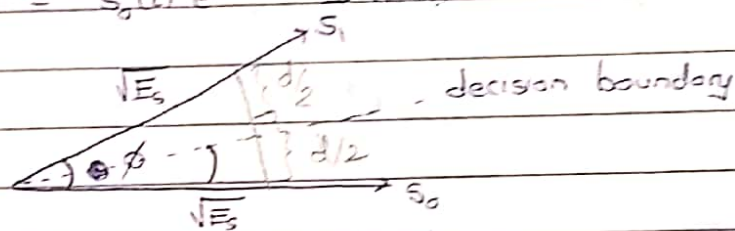 S₁
√Eₛ
d/2
decision boundary
ϕ
d/2
S₀
√Eₛ